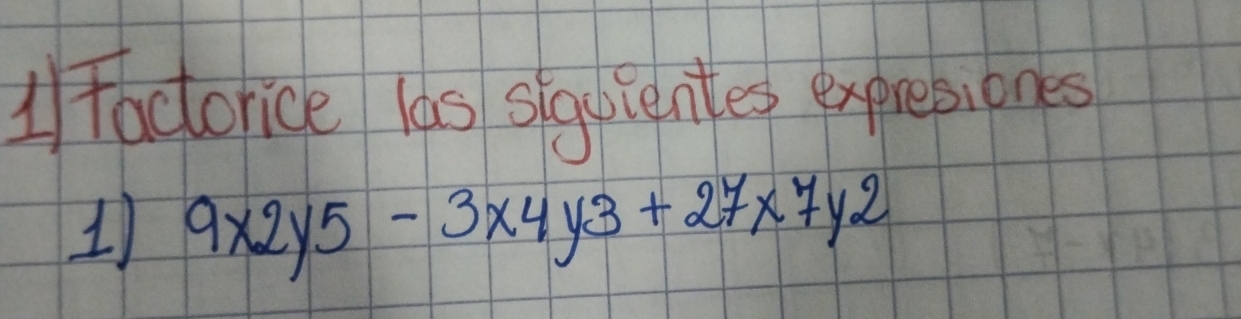 1) Factorice las siguientes expresiones
1) 9x2y5 - 3x4y3 + 27x7y2